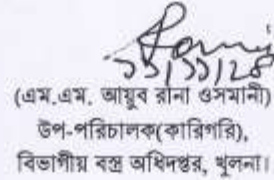 ১১/১১/২৪
(এম.এম. আয়ুব রানা ওসমানী)
উপ-পরিচালক(কারিগরি),
বিভাগীয় বস্ত্র অধিদপ্তর, খুলনা।